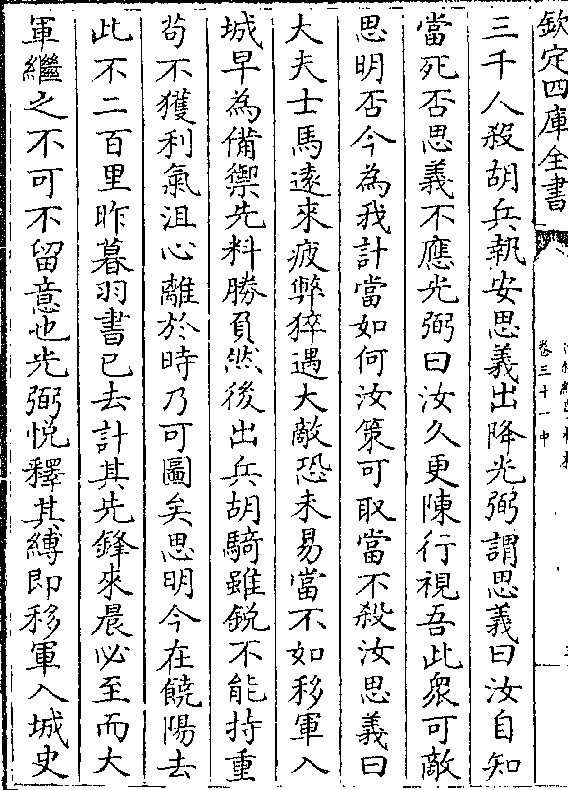 欽定四庫全書
卷三十一中
三千人殺胡兵執安思義出降光弼謂思義曰汝自知
當死否思義不應光弼曰汝久更陳行視吾此衆可敵
思明否今為我計當如何汝策可取當不殺汝思義曰
大夫士馬逺來疲弊猝遇大敵恐未易當不如移軍入
城早為備禦先料勝負然後出兵胡騎雖銳不能持重
茍不獲利氣沮心離於時乃可圖矣思明今在饒陽去
此不二百里昨暮羽書已去計其先鋒來晨必至而大
軍繼之不可不留意也光弼悅釋其縛即移軍入城史